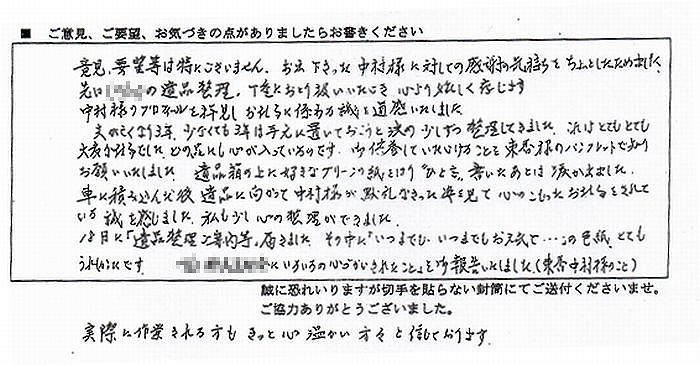 ■ ご意見、ご要望、お気づきの点がありましたらお書きください
意見、要望等は特にございません。お出下さった中村様に対しての感謝の気持ちをちょっとしたためました
先日 の遺品整理、丁寧にお取り扱いいただき心より嬉しく存じます
中村様のプロフィールを拝見しお仕事に係わる誠を道感いたしました
夫の亡くなり3年、少なくても3年は手元に置いておこうと決め少しずつ整理してきました。これはとてもとても
大変な仕事でした。どの品にも心が入っているのです。御供養していただけることを東香様のパンフレットで知り
お願いいたしました。遺品箱の上に好きなグリーンの紙とはり"ひと言"書いたあとは涙が出ました。
車に積み込んだ後 遺品に向かって中村様が黙礼なさった姿を見て 心のこもったお仕事をされて
いる誠を感じました。私も少し心の整理ができました。
18日に「遺品整理ご案内等」届きました。その中に「いつまでも・いつまでもお元気で…この色紙、とても
うれしかったです にいろいろの心づかいされたこと」を御報告いたしました(東香中村様のこと)
誠に恐れいりますが切手を貼らない封筒にてご送付くださいませ。
ご協力ありがとうございました。
実際に作業される方も きっと心温かい方々と信じております。